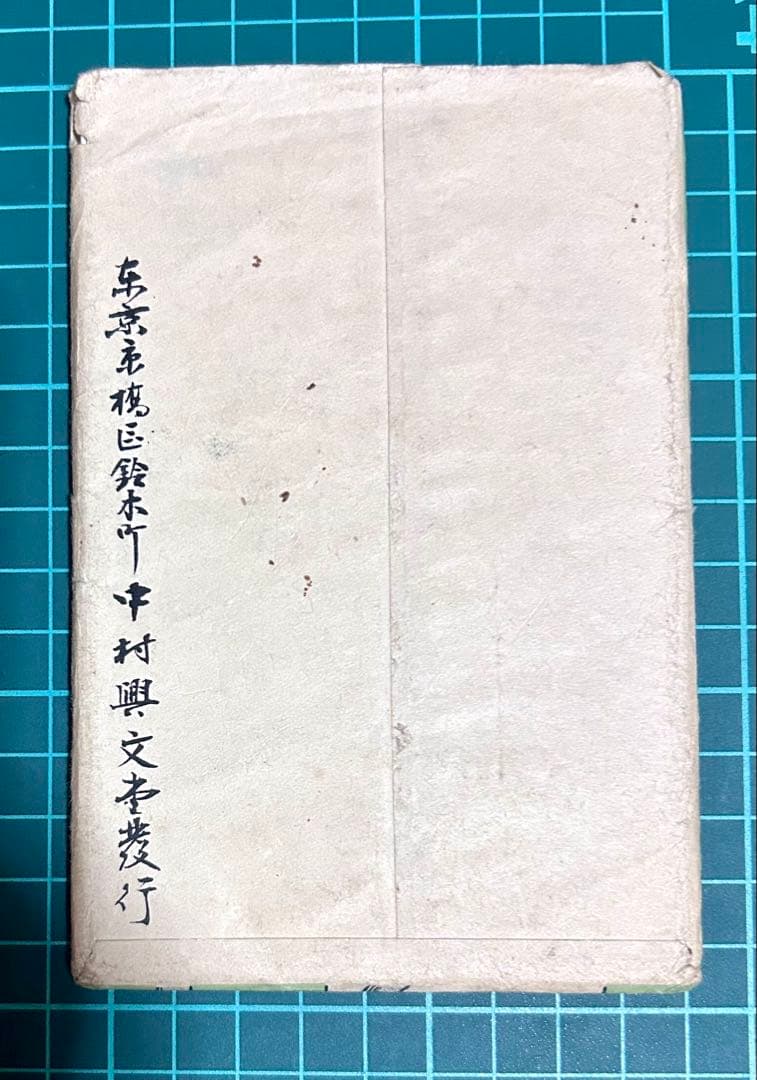 東京京橋区鈴木町 中村興文堂發行